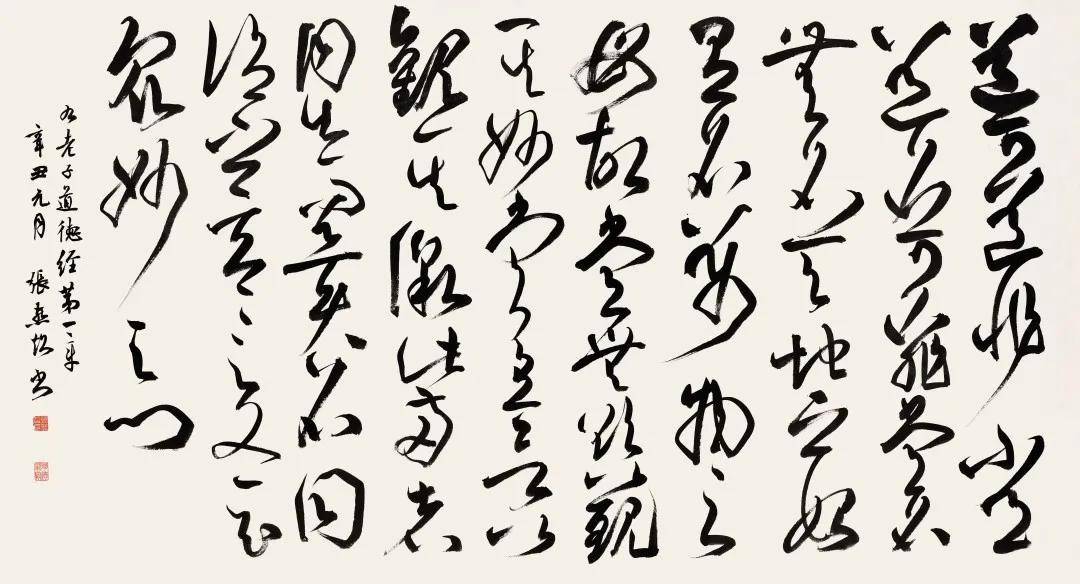 道可道非常
道名可名非常名
無名天地之始
有名萬物之
母故常無欲以觀
其妙常有欲以
觀其徼此兩者
同出而異名同
謂之玄玄之又玄
眾妙之門
右老子道德經第一章
辛丑元月 張 書